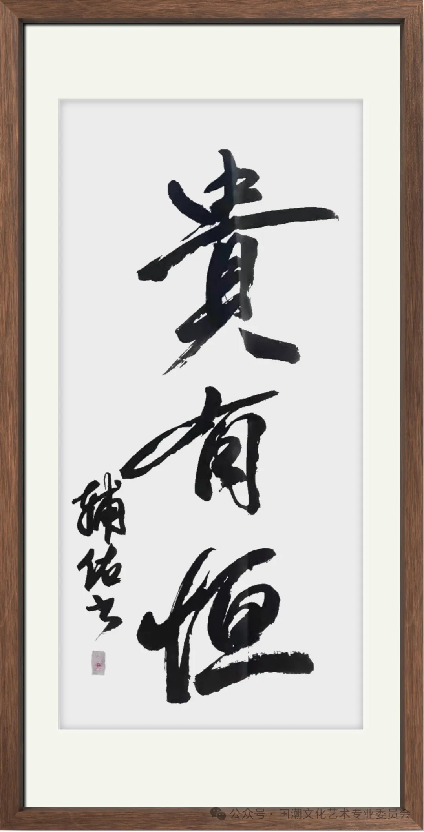 貴有恒
輔佑书
公众号·国潮文化艺术专业委员会